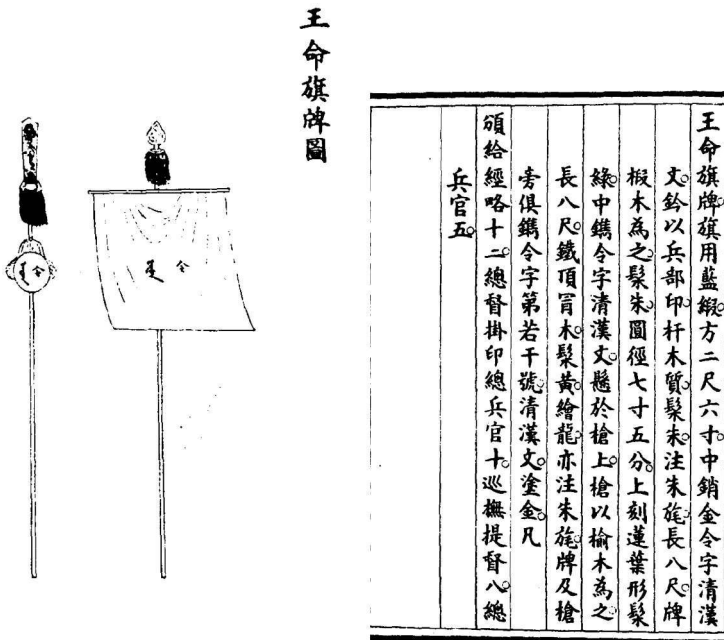 王命旗牌旗用藍緞方二尺六寸中銷金令字清漢
文鈐以兵部印杆木質髹朱注朱旄長八尺牌
椴木為之髹朱圓徑七寸五分上刻蓮葉形髹
綠中鐫令字清漢文懸於槍上槍以榆木為之
長八尺鐵頂冒木髹黃繪龍亦注朱旄牌及槍
旁俱鐫令字第若干號清漢文塗金凡
頒給經略十二總督掛印總兵官十巡撫提督八總
兵官五
王命旗牌圖
令
令